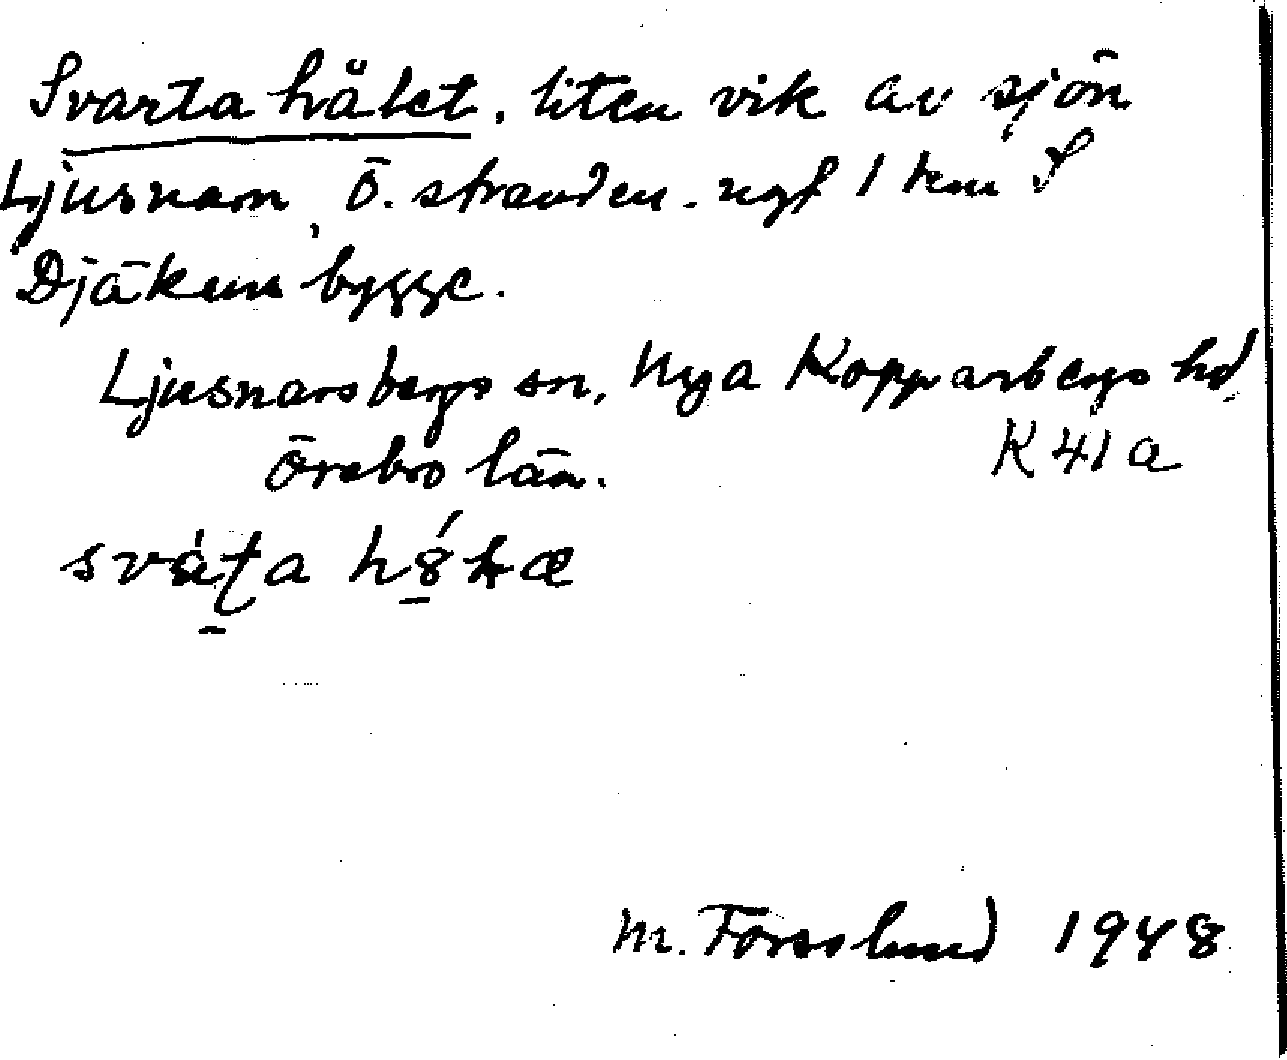 Svarta hålet, liten vik av sjön
Ljusnaren, Ö. stranden. ngt 1 km S
Djäkens bygge.
Ljusnarsbergs sn, Nya Kopparbergs hd,
Örebro län. K 41 a
M. Forsslund 1948